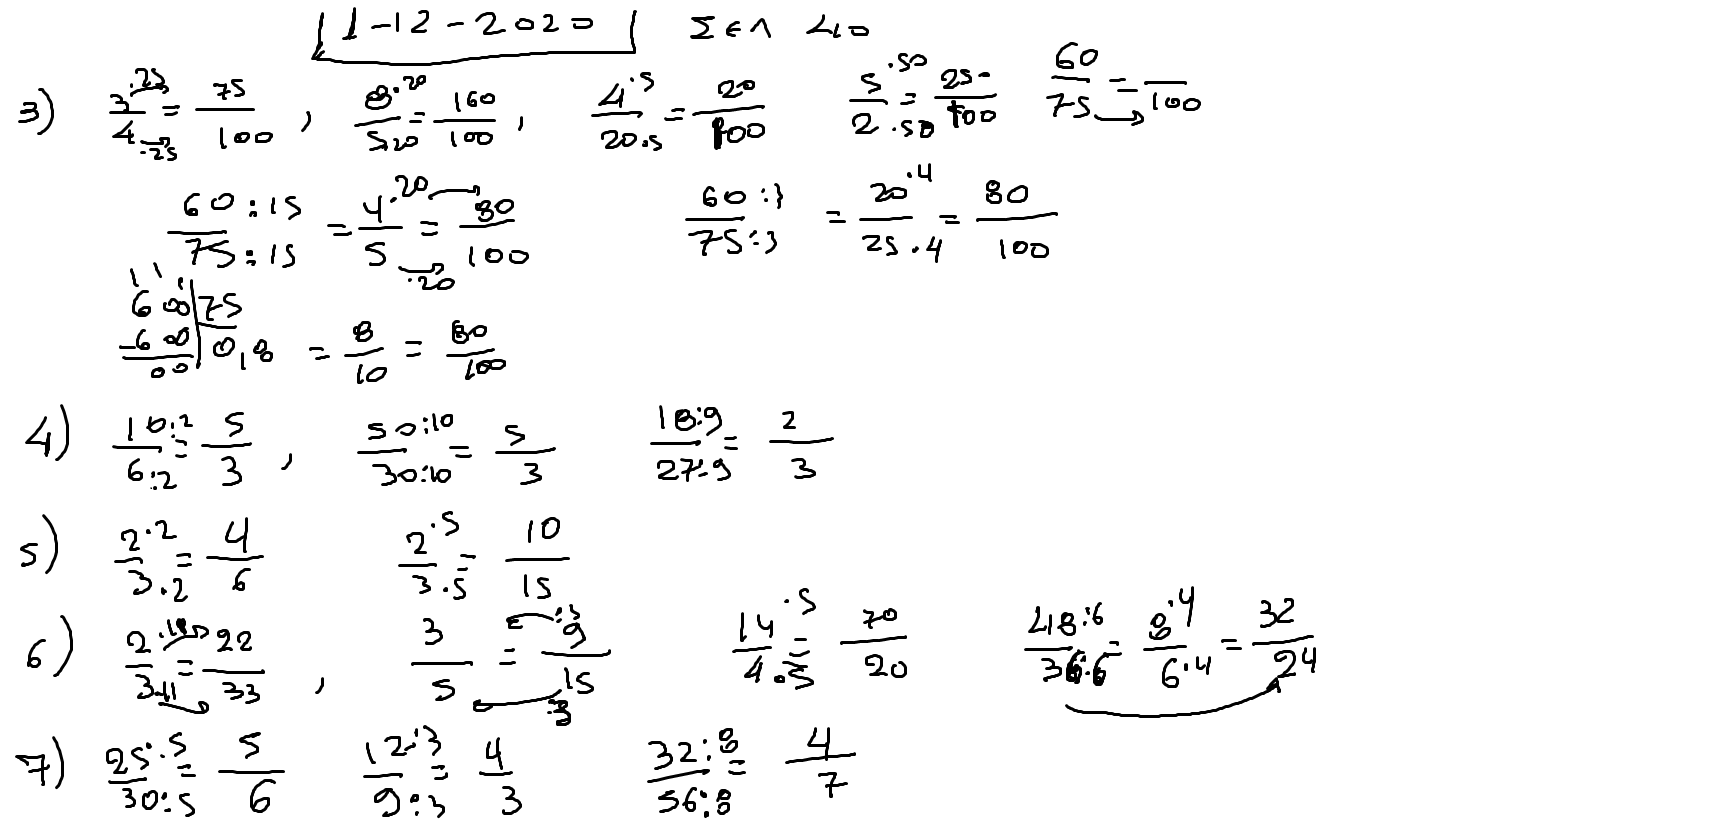 1-12-2020 Σελ 40
3) 3·25/4·25 = 75/100 , 8·20/5·20 = 160/100 , 4·5/20·5 = 20/100 5·50/2·50 = 250/100 60/75 = /100
60:15/75:15 = 4·20/5·20 = 80/100 60:3/75:3 = 20·4/25·4 = 80/100
600|75
-600|0,8 = 8/10 = 80/100
00
4) 10:2/6:2 = 5/3 , 50:10/30:10 = 5/3 18:9/27:9 = 2/3
5) 2·2/3·2 = 4/6 2·5/3·5 = 10/15
6) 2·11/3·11 = 22/33 , 3/5 = 9:3/15:3 14·5/4·5 = 70/20 48:6/36:6 = 8·4/6·4 = 32/24
7) 25:5/30:5 = 5/6 12:3/9:3 = 4/3 32:8/56:8 = 4/7